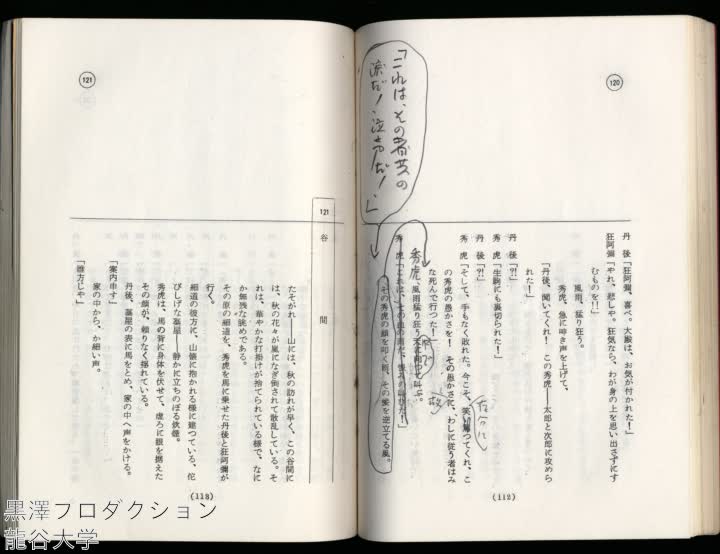 120
丹後「狂阿彌、喜べ。大殿は、お気が付かれた！」
狂阿彌「やれ、悲しや。狂気なら、わが身の上を思い出さずにす
むものを！！」
風雨、猛り狂う。
秀虎、急に呻き声を上げて、
「丹後、聞いてくれ！この秀虎――太郎と次郎に攻めら
れた！」
丹後「⁈」
秀虎「生駒にも裏切られた！」
丹後「⁈」
秀虎「そして、手もなく敗れた。今こそ、笑い
つてくれ、こ
の秀虎の愚かさを！その愚かさで、わしに従う者はみ
な死んで行つた！」
秀虎
風雨猛り狂う
叫ぶ。
秀虎「これは、その
だ！」
その秀虎の顔を叩く雨、その髪を逆立てる風。
「これは、その者共の
涙だ！泣き声だ！」
(112)
121
121
谷間
たそがれ――山には、秋の訪れが早く、この谷間に
は、秋の花々が嵐になぎ倒されて散乱している。そ
れは、華やかな打掛けが捨てられている様で、なに
か無残な眺めである。
その原の細道を、秀虎を馬に乗せた丹後と狂阿彌が
行く。
細道の彼方に、山懐に抱かれる様に建つている、侘
びしげな藁屋――静かに立ちのぼる炊煙。
秀虎は、馬の背に身体を伏せて、虚ろに眼を据えた
その顔が、頼りなく揺れている。
丹後、藁屋の表に馬をとめ、家の中へ声をかける。
「案内申す」
家の中から、か細い声。
「誰方じゃ」
(113)
黒澤プロダクション
龍谷大学